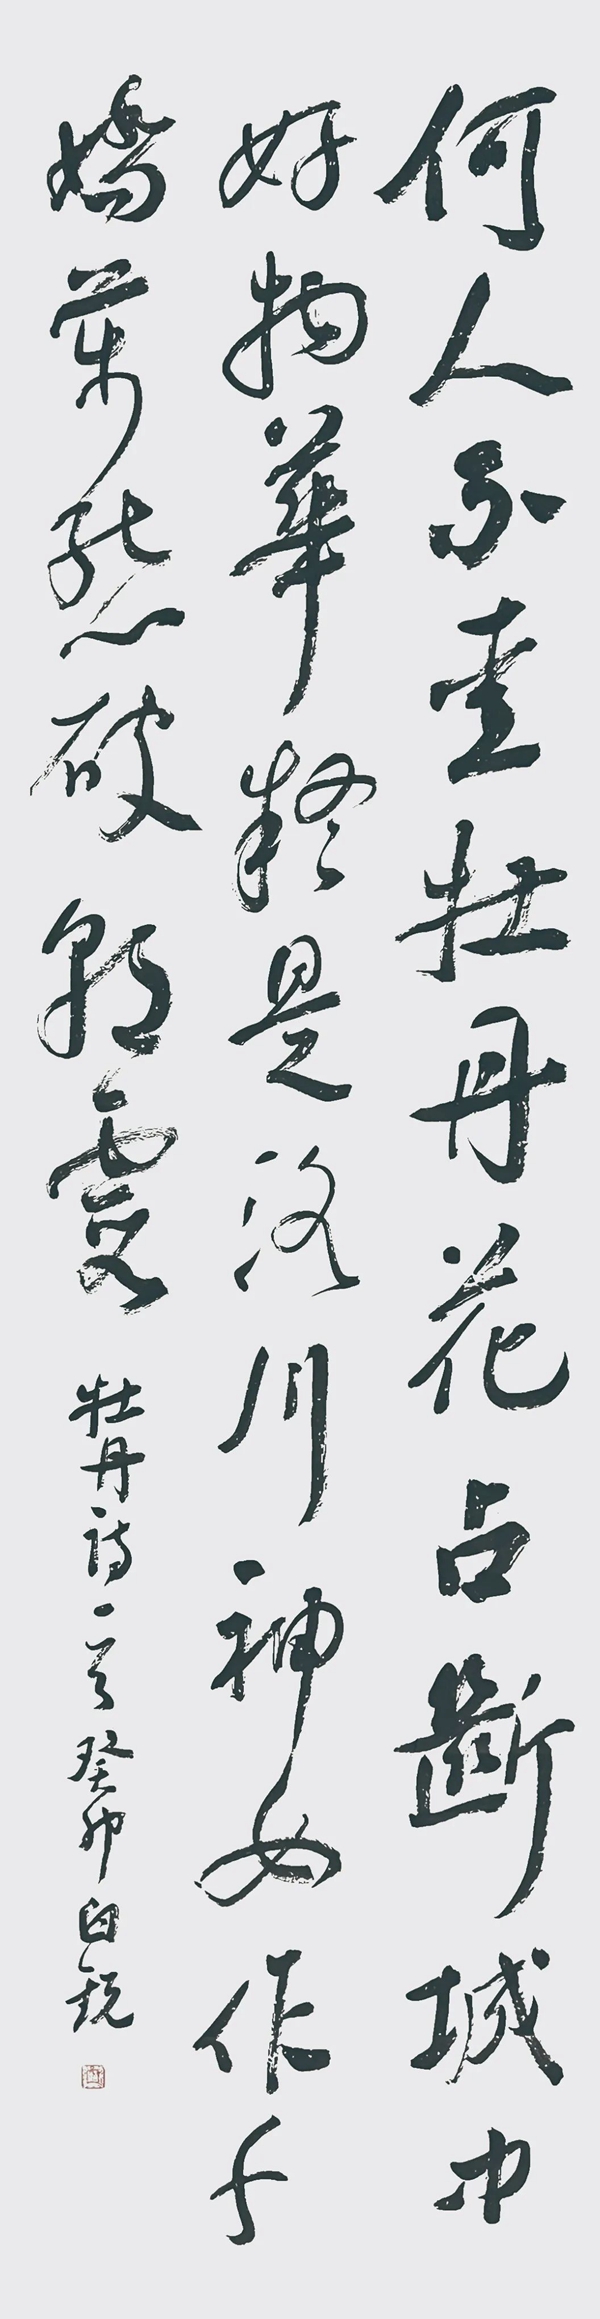 何人不愛牡丹花占斷城中
好物華疑是洛川神女作千
嬌萬態破朝霞 牡丹詩一首 癸卯 白銳